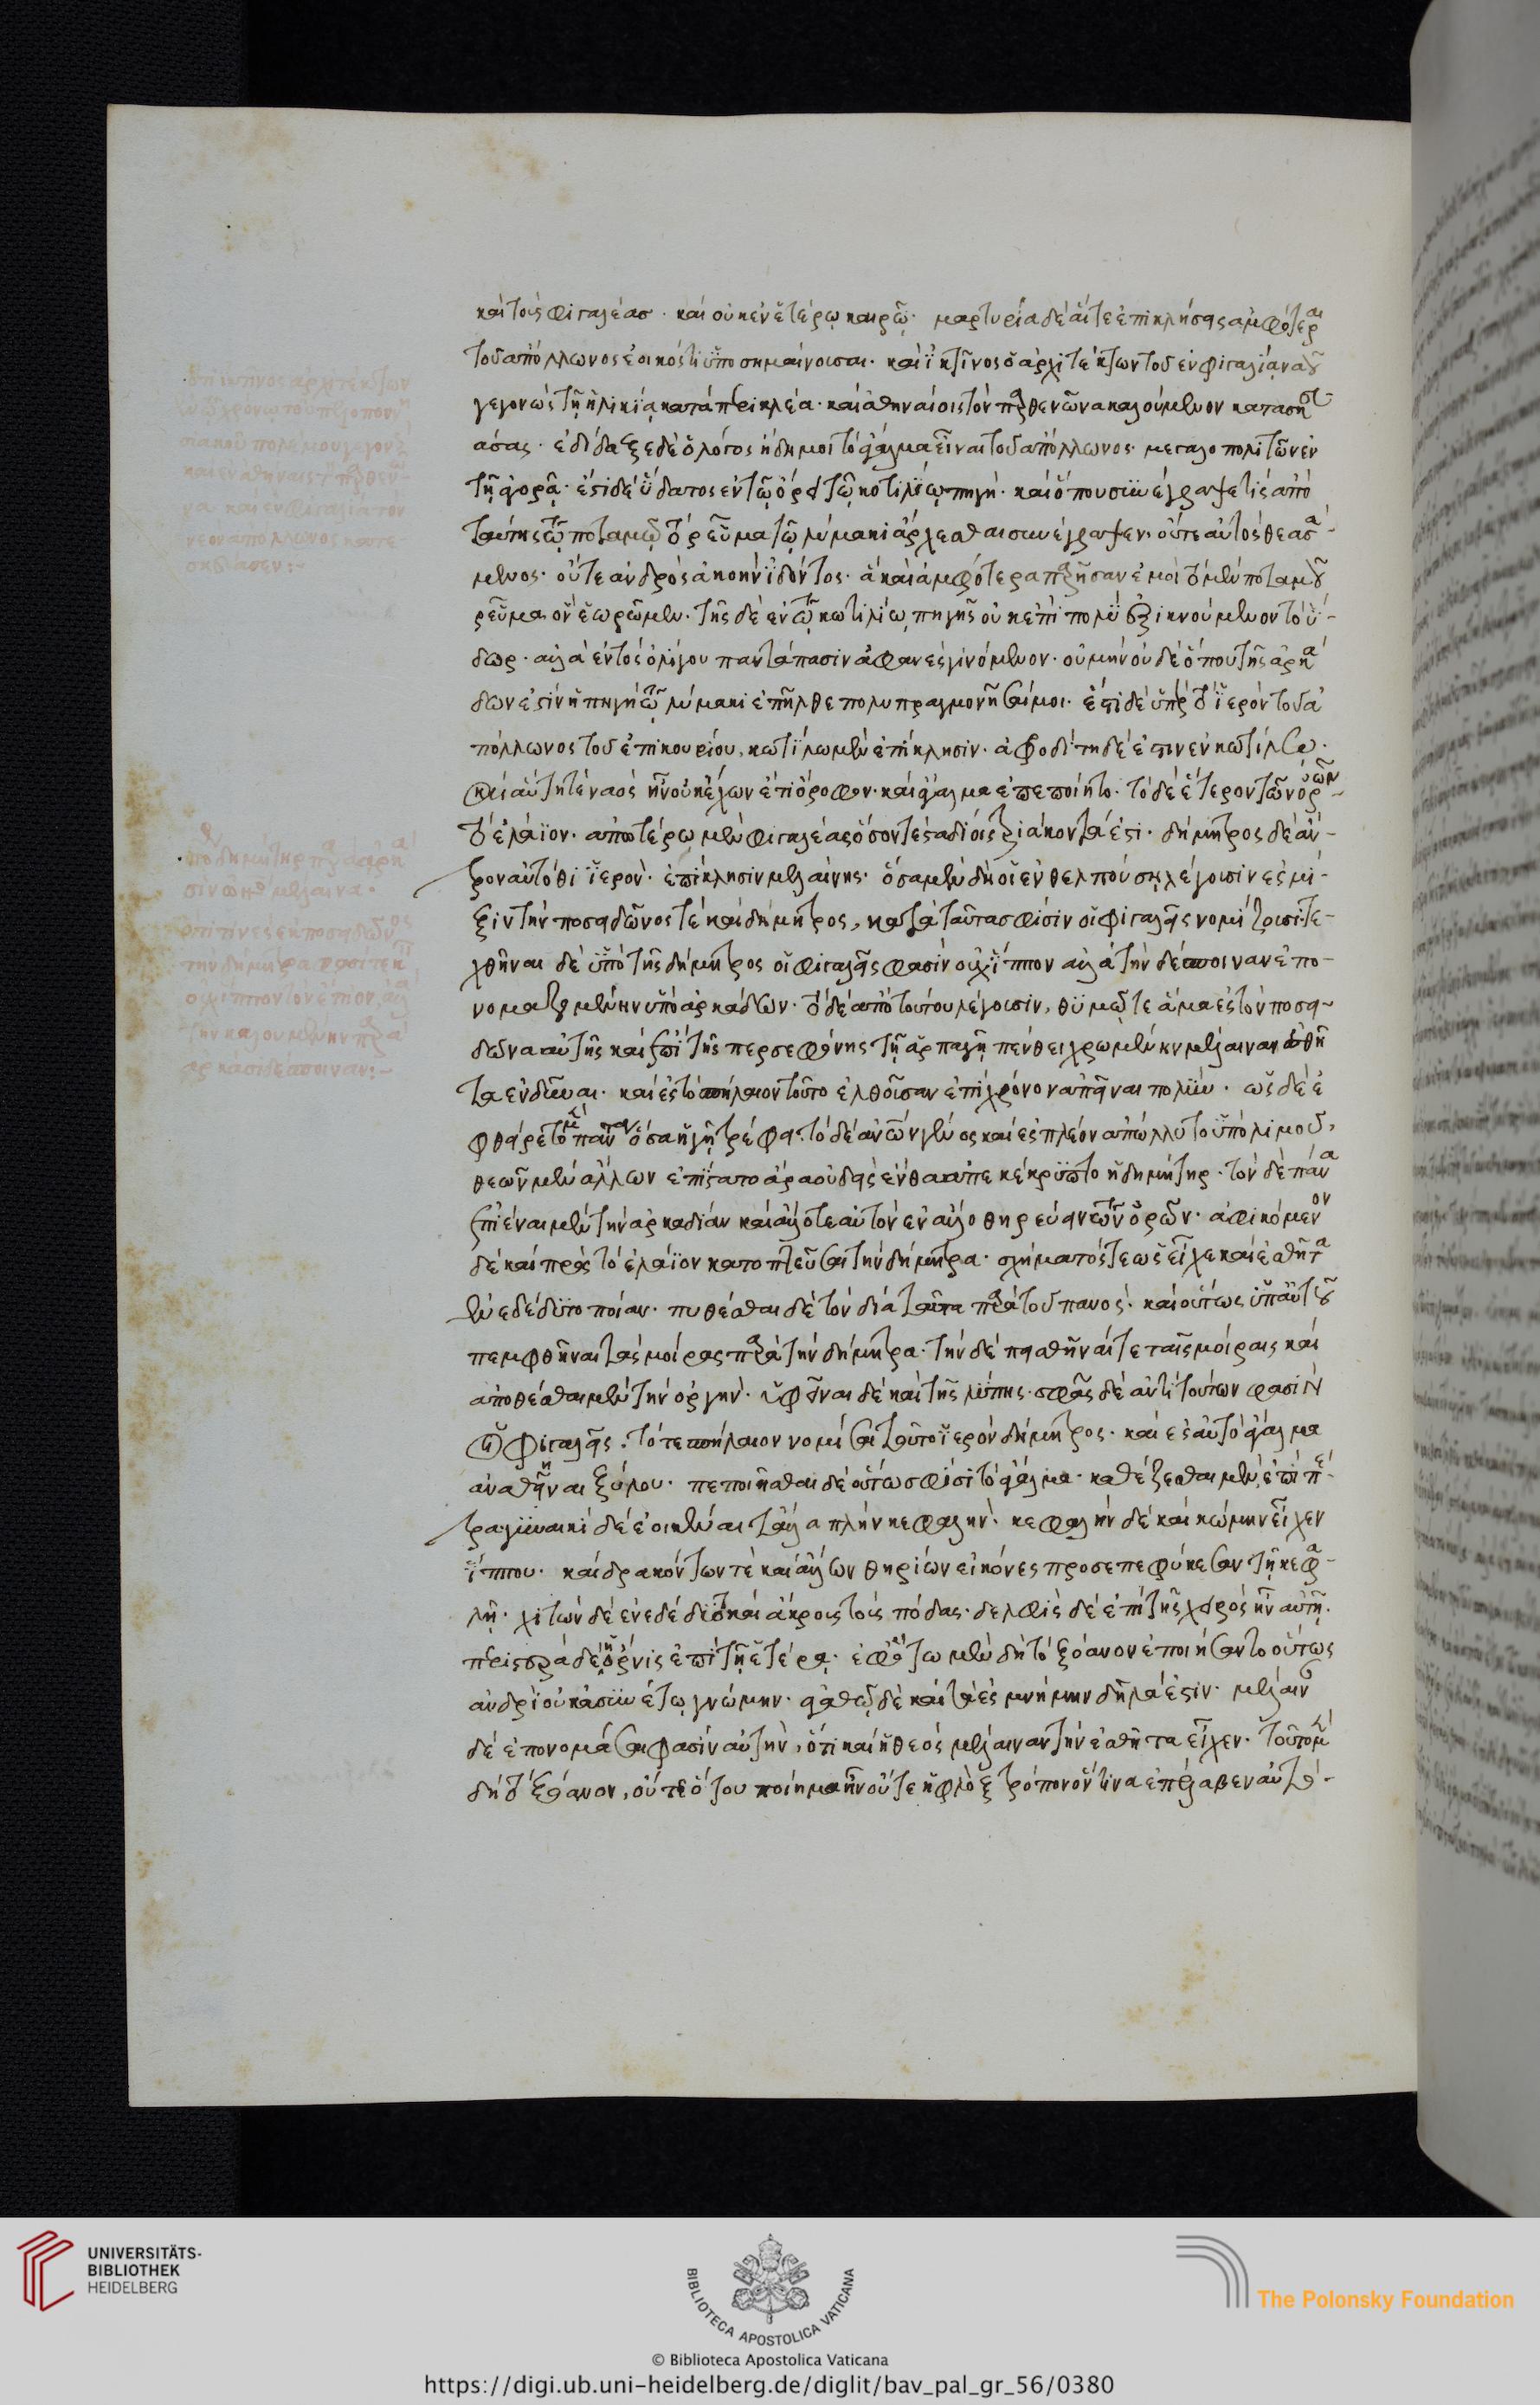 καὶ τοὺς φιγαλέασ · καὶ οὐκ ἐν ἑτέρῳ καιρῷ · μαρτυρία δὲ αἵ τε ἐπικλήσεις ἀμφότεραι
τοῦ ἀπόλλωνος ἐοικός τι ὑποσημαίνουσαι · καὶ ἰκτῖνος ὁ ἀρχιτέκτων τοῦ ἐν φιγαλίᾳ ναοῦ
γεγονὼς τῇ ἡλικίᾳ κατὰ περικλέα · καὶ ἀθηναίοις τὸν παρθενῶνα καλούμενον κατασκευ-
άσας · ἐδίδαξε δὲ ὁ λόγος ἤδη μοι τὸ ἄγαλμα εἶναι τοῦ ἀπόλλωνος · μεγαλοπολιτῶν ἐν
τῇ ἀγορᾷ · ἔστι δὲ ὕδατος ἐν τῷ ὄρει τῷ κοτιλίῳ πηγή · καὶ ὅπου συνέγραψέ τις ἀπὸ
ταύτης τῷ ποταμῷ τὸ ῥεῦμα τῷ λύμακι ἄρχεσθαι συνέγραψεν · οὔτε αὐτὸς θεασά-
μενος · οὔτε ἀνδρὸς ἀκοὴν ἰδόντος · ἃ καὶ ἀμφότερα παρῆσαν ἐμοὶ τὸ μὲν ποταμοῦ
ῥεῦμα ὃν ἑωρῶμεν · τῆς δὲ ἐν τῷ κωτιλίῳ πηγῆς οὐκ ἐπὶ πολὺ ἐξικνούμενον τὸ ὕ-
δωρ · ἀλλὰ ἐντὸς ὀλίγου παντάπασιν ἀφανὲς γινόμενον · οὐ μὴν οὐδὲ ὅπου τῆς ἀρκά-
δων ἐστὶν ἡ πηγὴ τῷ λύμακι ἐπῆλθε πολυπραγμονῆσαί μοι · ἔστι δὲ ὑπὲρ τὸ ἱερὸν τοῦ ἀ
πόλλωνος τοῦ ἐπικουρίου, κωτίλωι μὲν ἐπίκλησιν · ἀφροδίτη δέ ἐστιν ἐν κωτίλῳ ·
καὶ αὐτῇ τε ναὸς ἦν οὐκ ἔχων ἔτι ὄροφον · καὶ ἄγαλμα ἐπεποίητο · τὸ δὲ ἕτερον τῶν ὀρῶν
τὸ ἐλάϊον · ἀπωτέρω μὲν φιγαλέας ὅσον τε σταδίοις τριάκοντά ἐστι · δήμητρος δὲ ἄν-
τρον αὐτόθι ἱερὸν · ἐπίκλησιν μελαίνης · ὅσα μὲν δὴ οἱ ἐν θελπούσῃ λέγουσιν ἐς μῖ-
ξιν τὴν ποσειδῶνός τε καὶ δήμητρος, κατὰ ταῦτά σφισιν οἱ φιγαλεῖς νομίζουσι · τε-
χθῆναι δὲ ὑπὸ τῆς δήμητρος οἱ φιγαλεῖς φασὶν οὐχ ἵππον ἀλλὰ τὴν δέσποιναν ἐπο-
νομαζομένην ὑπὸ ἀρκάδων · τὸ δὲ ἀπὸ τούτου λέγουσιν, θυμῷ τε ἅμα ἐς τὸν ποσει-
δῶνα αὐτῆς καὶ ἐπὶ τῆς περσεφόνης τῇ ἁρπαγῇ πένθει χρωμένην μέλαιναν ἐσθῆ
τα ἐνδῦναι · καὶ ἐς τὸ σπήλαιον τοῦτο ἐλθοῦσαν ἐπὶ χρόνον ἀπεῖναι πολύν · ὡς δὲ ἐ
φθείρετο μὲν πάντα ὅσα ἡ γῆ τρέφει · τὸ δὲ ἀνθρώπων γένος καὶ ἐς πλέον ἀπώλλυτο ὑπὸ λιμοῦ,
θεῶν μὲν ἄλλων ἐπίστατο ἄρα οὐδεὶς ἔνθα ἀπεκέκρυπτο ἡ δημήτηρ · τὸν δὲ πᾶνα
ἐπιέναι μὲν τὴν ἀρκαδίαν καὶ ἄλλοτε αὐτὸν ἐν ἄλλῳ θηρεύειν τῶν ὀρῶν · ἀφικόμενον
δὲ καὶ πρὸς τὸ ἐλάϊον κατοπτεῦσαι τὴν δήμητρα · σχήματός τε ὡς εἶχε καὶ ἐσθῆτα
ἐνεδέδυτο ποίαν · πυθέσθαι δὲ τὸν δία ταῦτα παρὰ τοῦ πανὸς · καὶ οὕτως ὑπ' αὐτοῦ
πεμφθῆναι τὰς μοίρας παρὰ τὴν δήμητρα · τὴν δὲ πεισθῆναί τε ταῖς μοίραις καὶ
ἀποθέσθαι μὲν τὴν ὀργὴν · ὑφεῖναι δὲ καὶ τῆς λύπης · σφᾶς δὲ ἀντὶ τούτων φασὶν
οἱ φιγαλεῖς · τό τε σπήλαιον νομίσαι τοῦτο ἱερὸν δήμητρος · καὶ ἐς αὐτὸ ἄγαλμα
ἀναθεῖναι ξύλου · πεποιῆσθαι δὲ οὕτω σφίσι τὸ ἄγαλμα · καθέζεσθαι μὲν ἐπὶ πέ-
τρᾳ γυναικὶ δὲ ἐοικέναι τἆλλα πλὴν κεφαλὴν · κεφαλὴν δὲ καὶ κώμην εἶχεν
ἵππου · καὶ δρακόντων τὲ καὶ ἄλλων θηρίων εἰκόνες προσεπεφύκεσαν τῇ κεφα-
λῇ · χιτῶν δὲ ἐνεδέδυτο καὶ ἄκρους τοὺς πόδας · δελφὶς δὲ ἐπὶ τῆς χειρὸς ἦν αὐτῇ ·
περιστερὰ δὲ ἡ ὄρνις ἐπὶ τῇ ἑτέρᾳ · ἐφ' ὅτῳ μὲν δὴ τὸ ξόανον ἐποιήσαντο οὕτως
ἀνδρὶ οὐκ ἀσυνέτῳ γνώμην · ἀγαθῷ δὲ καὶ τὰ ἐς μνήμην δῆλά ἐστιν · μέλαιναν
δὲ ἐπονομάσαι φασὶν αὐτὴν, ὅτι καὶ ἡ θεὸς μέλαιναν τὴν ἐσθῆτα εἶχεν · τοῦτο μὲν
δὴ τὸ ξόανον, οὔτε ὅτου ποίημα ἦν οὔτε ἡ φλὸξ τρόπον ὅντινα ἐπέλαβεν αὐτὸ ·
UNIVERSITÄTS-
BIBLIOTHEK
HEIDELBERG
BIBLIOTECA APOSTOLICA VATICANA
© Biblioteca Apostolica Vaticana
The Polonsky Foundation
https://digi.ub.uni-heidelberg.de/diglit/bav_pal_gr_56/0380